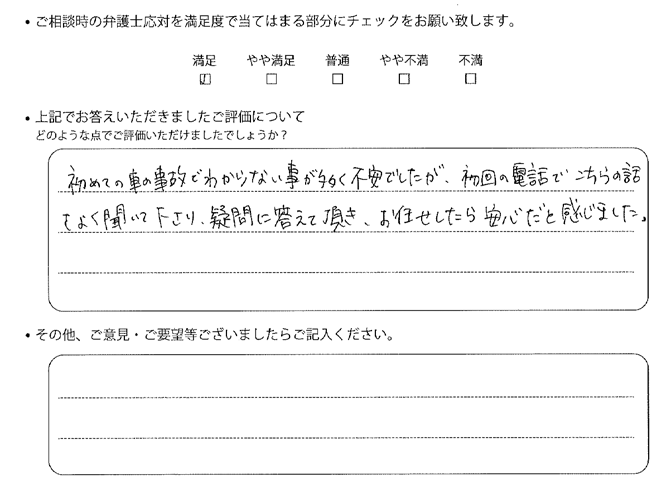 ・ご相談時の弁護士応対を満足度で当てはまる部分にチェックをお願い致します。
満足 やや満足 普通 やや不満 不満
☑ □ □ □ □
・上記でお答えいただきましたご評価について
どのような点でご評価いただけましたでしょうか？
初めての車の事故でわからない事が多く不安でしたが、初回の電話でこちらの話
をよく聞いて下さり、疑問に答えて頂き、お任せしたら安心だと感じました。
・その他、ご意見・ご要望等ございましたらご記入ください。